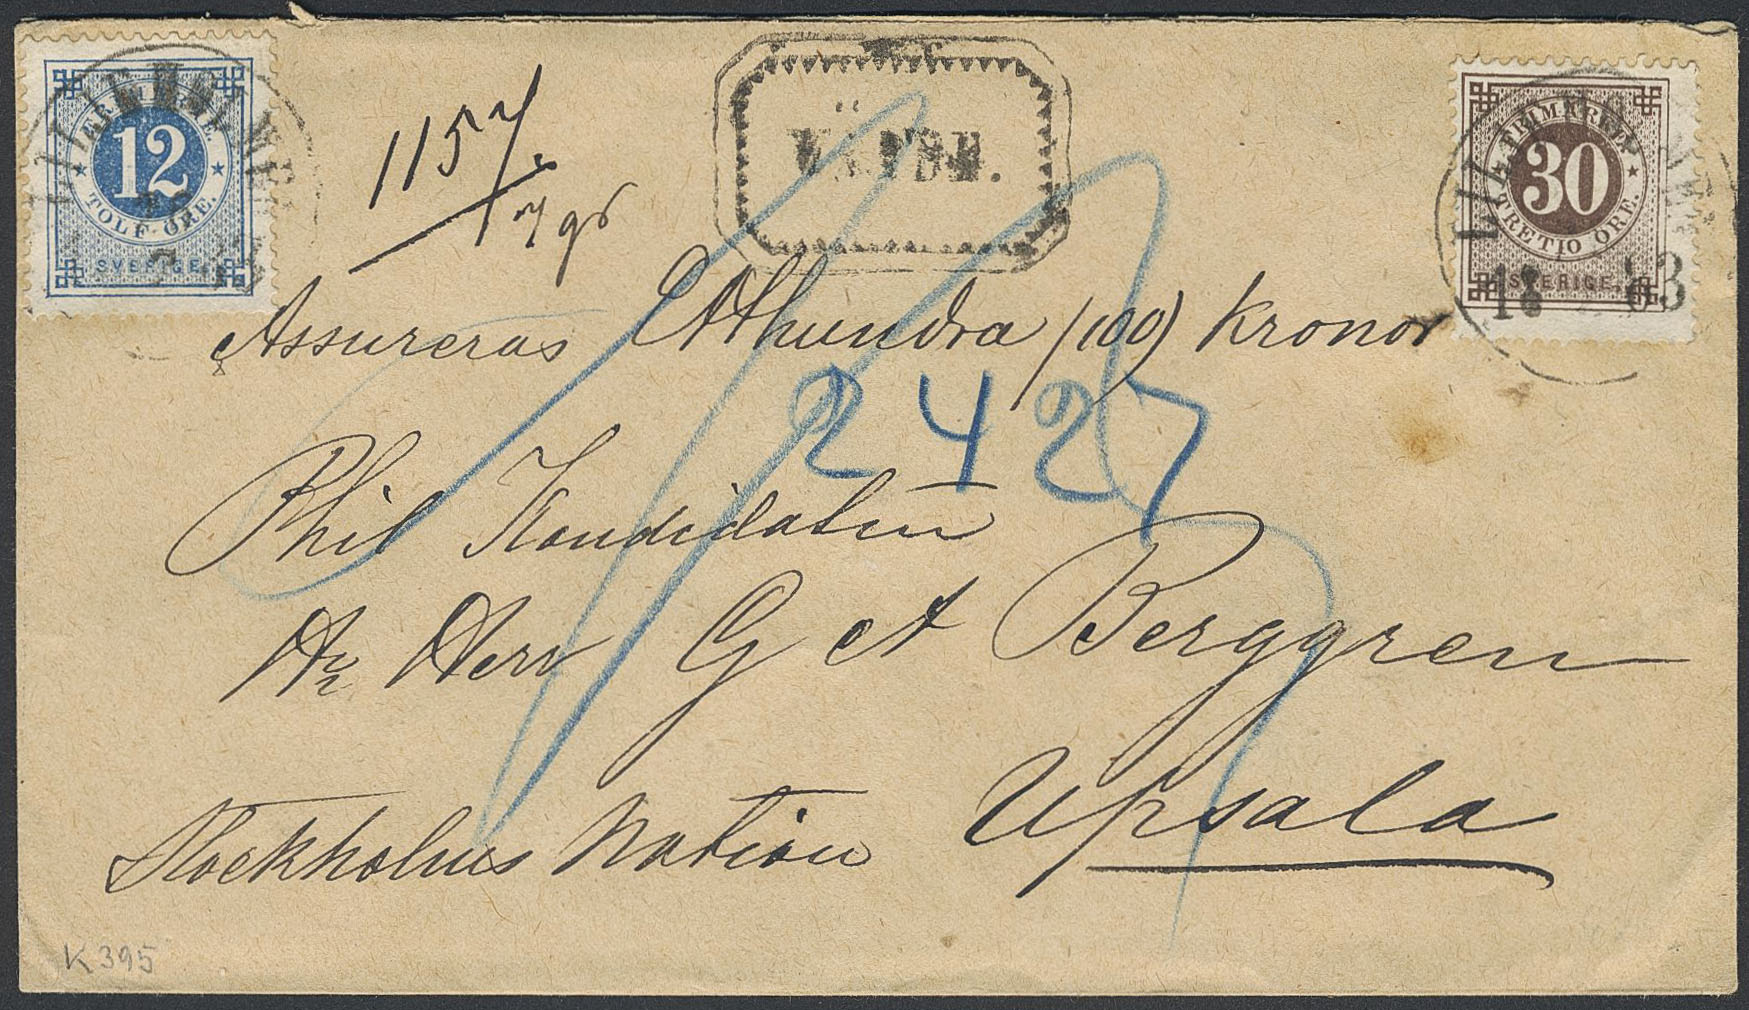 12
FRIMÄRKE
TOLF ÖRE.
SVERIGE
1157
VÄRDE.
FRIMÄRKE
30
TRETIO ÖRE.
SVERIGE.
18 83
Assureras Ethundra (100) kronor
2427
Phil Kandidaten
Hr Herr G et A Berggren
Upsala
Stockholms Nation
K 395